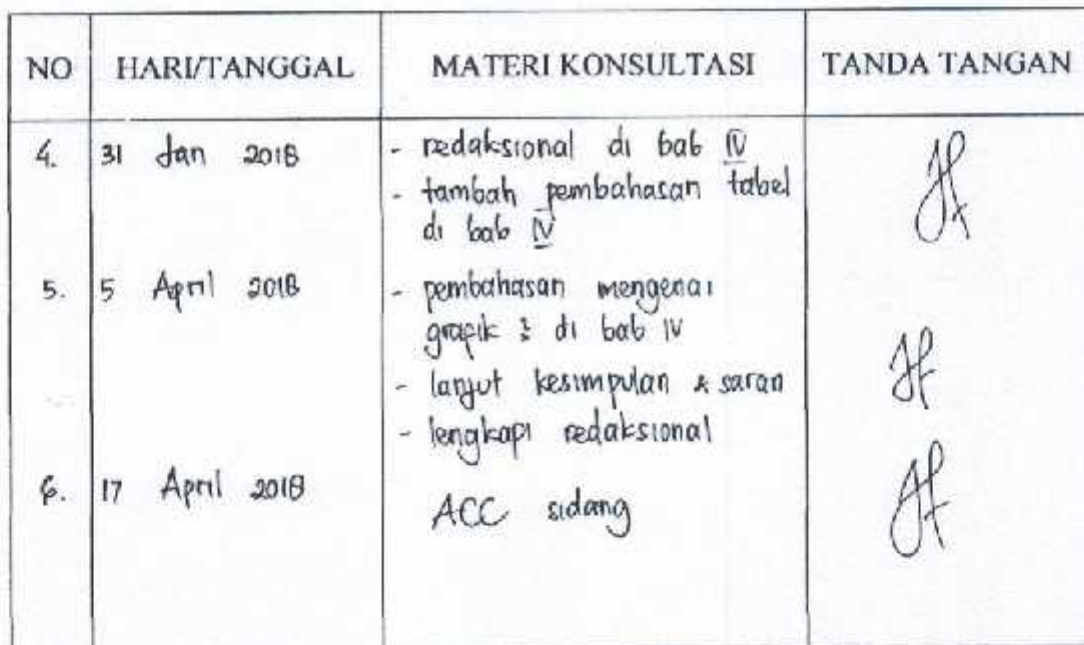 NO HARI/TANGGAL MATERI KONSULTASI TANDA TANGAN
4. 31 Jan 2018 - redaksional di bab IV
- tambah pembahasan tabel
di bab IV
5. 5 April 2018 - pembahasan mengenai
grafik di bab IV
- lanjut kesimpulan & saran
- lengkapi redaksional
6. 17 April 2018 ACC sidang